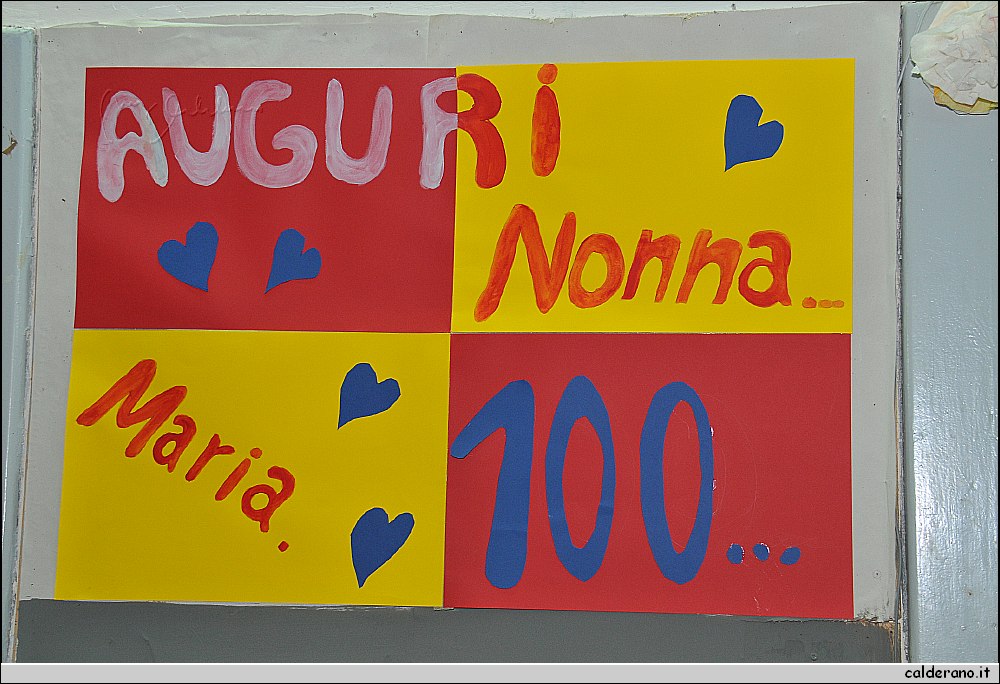 AUGURi
Nonna...
Maria.
100...
calderano.it